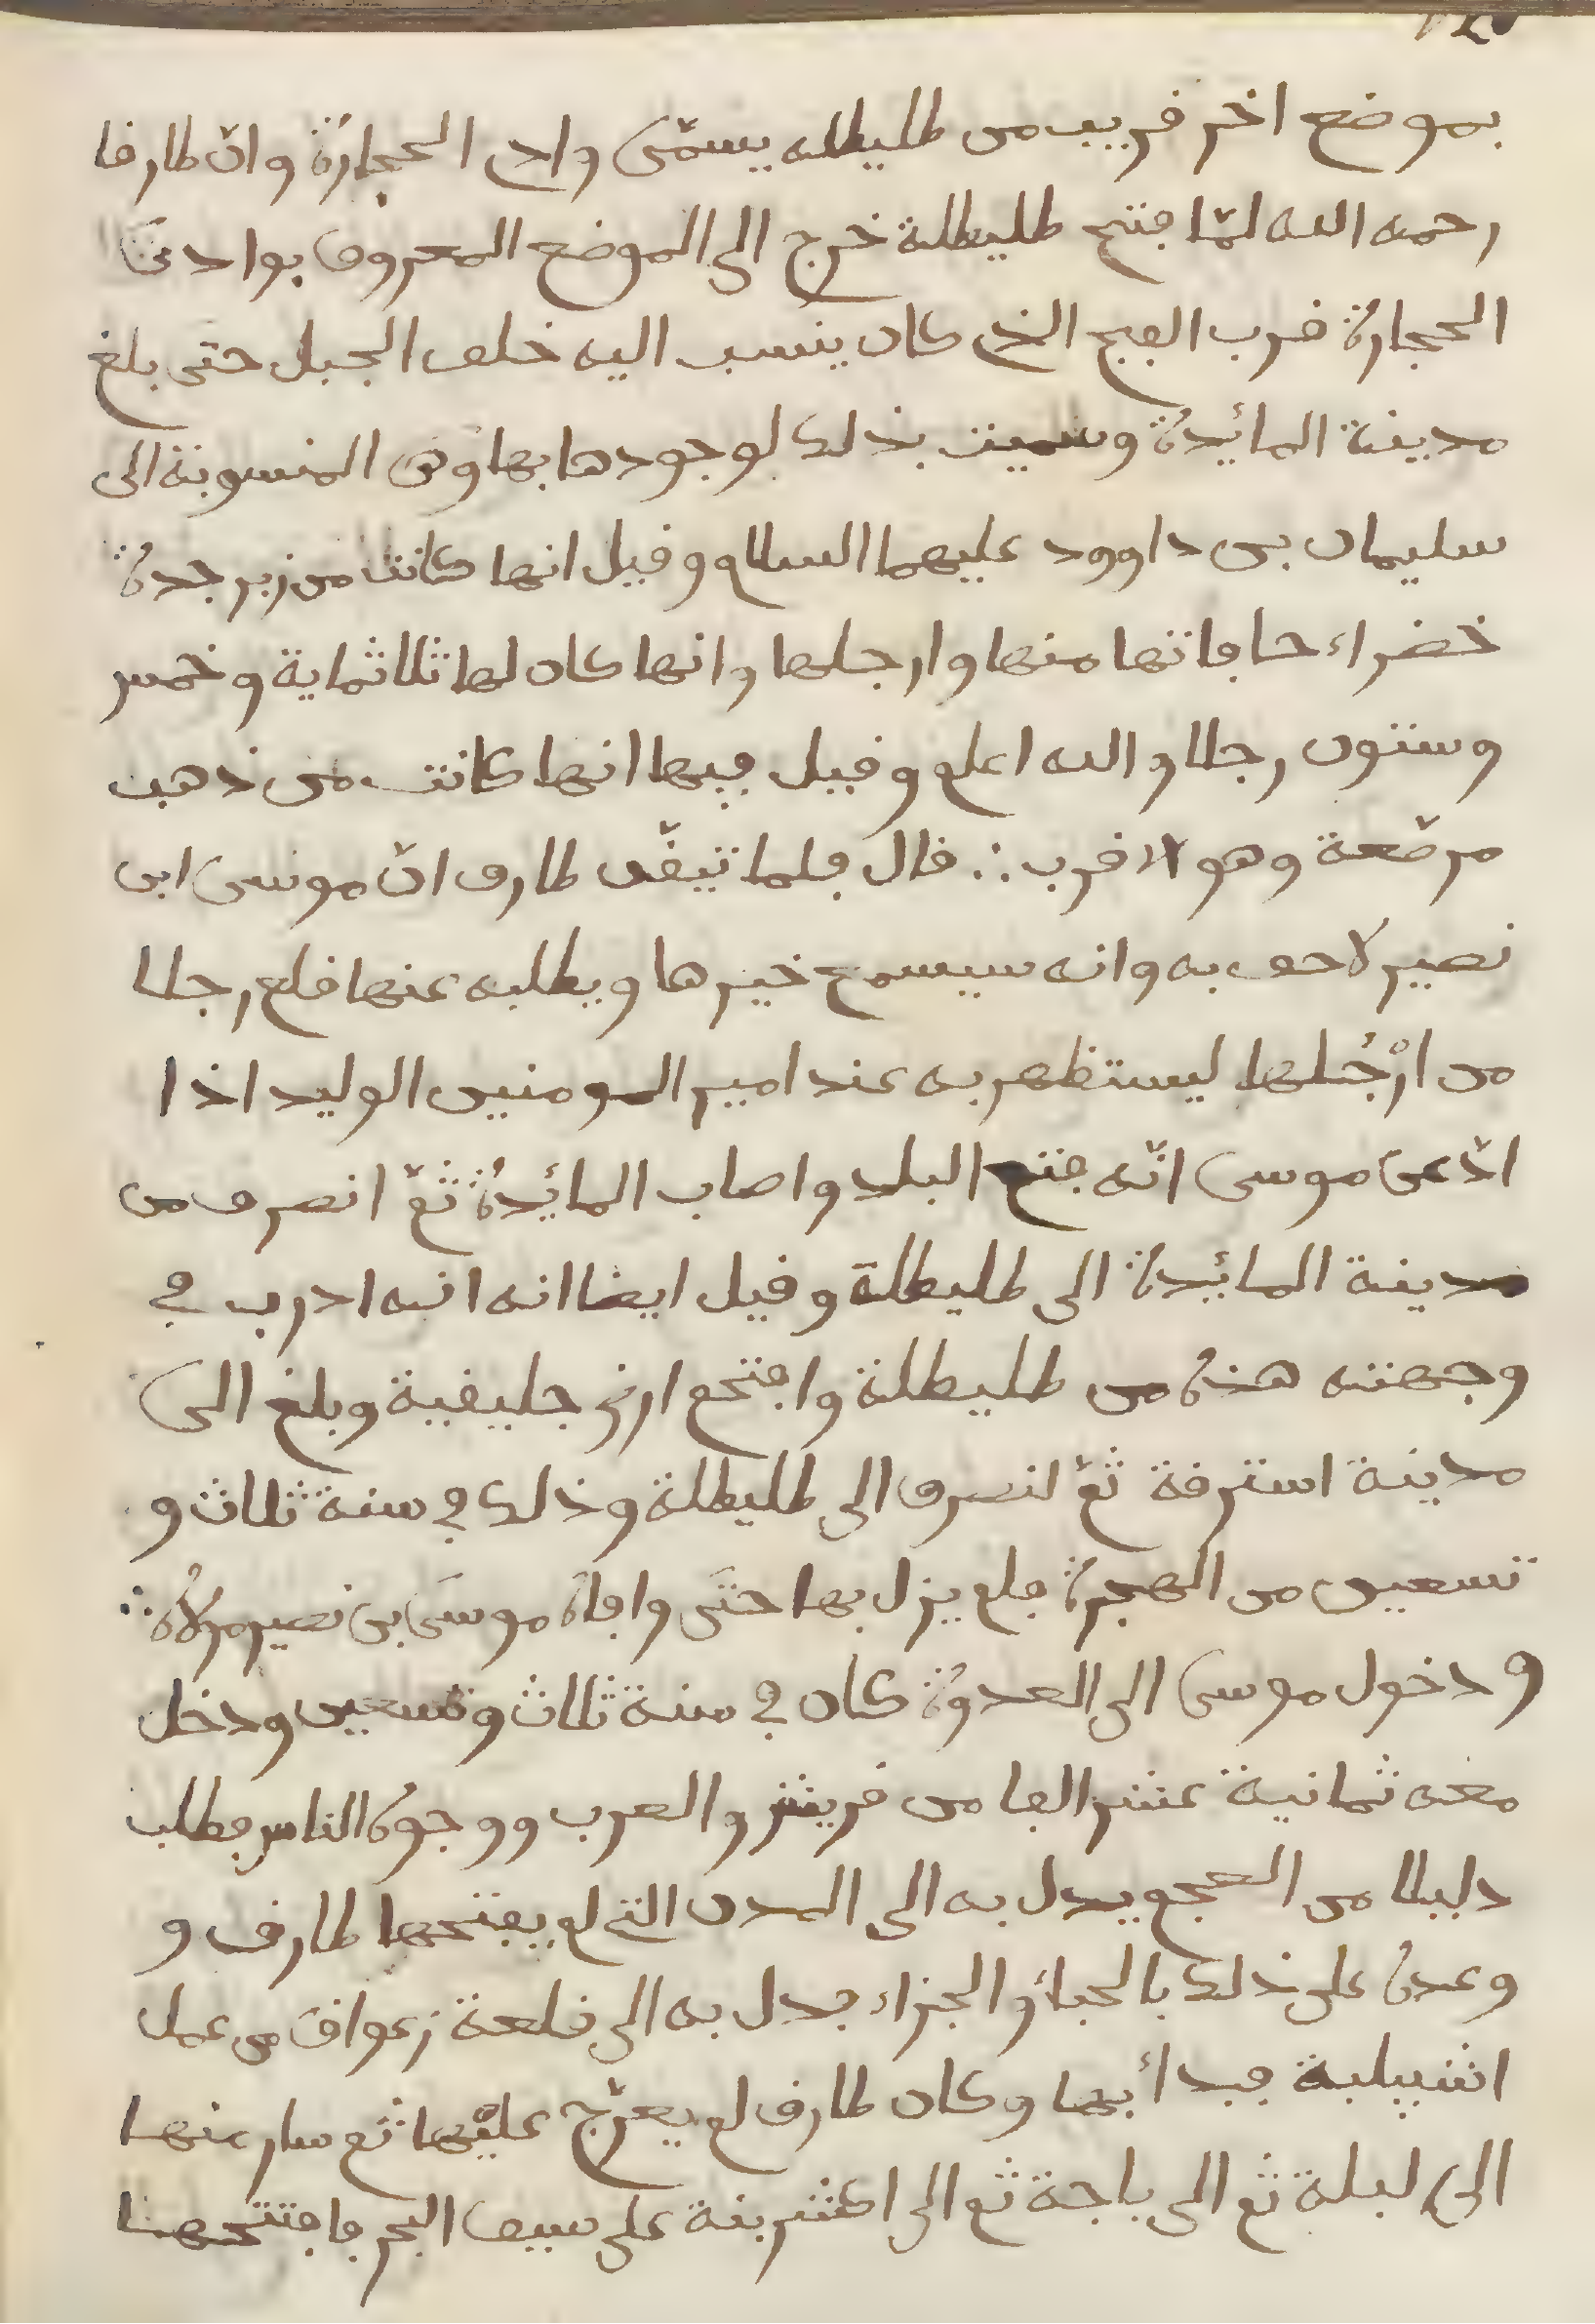 بموضع اخر قريب من طليطله يسمّى وادي الحجارة وانّ طارقا
رحمه الله لمّا فتح طليطلة خرج الى الموضع المعروف بوادي
الحجارة قرب الفج الذي كان ينسب اليه خلف الجبل حتى بلغ
مدينة المائيدة وسميت بذلك لوجودها بها وهي المنسوبة الى
سليمان بن داوود عليهما السلام وقيل انها كانت من زبرجدة
خضراء حافاتها منها وارجلها وانها كان لها ثلاثماية وخمس
وستون رجلا والله اعلم وقيل فيها انها كانت من ذهب
مرصّعة وهو الاقرب ∴ قال فلما تيقّن طارق انّ موسى ابن
نصير لاحق به وانه سيسمع خبرها ويطلبه عنها قلع رجلا
من ارْجُلها ليستظهر به عند امير المومنين الوليد اذا
ادّعى موسى انّه فتح البلد واصاب المائيدة ثمّ انصرف من
مدينة المائيدة الى طليطلة وقيل ايضا انه انه ادرب في
وجهته هذه من طليطلة وافتتح ارض جليقية وبلغ الى
مدينة استرقة ثمّ انصرف الى طليطلة وذلك في سنة ثلاث و
تسعين من الهجرة فلم يزل بها حتَى وافاه موسَى بن نصير مولاه ∴
ودخول موسى الى العدوة كان في سنة ثلاث وتسعين ودخل
معه ثمانية عشر الفا من قريش والعرب ووجوه الناس فطلب
دليلا من العجم يدل به الى المدن التي لم يفتحها طارق و
وعده على ذلك بالحباء والجزاء فدل به الى قلعة زعواق من عمل
اشبيلية فبدأ بها وكان طارق لم يعرّج عليْها ثم سار منها
الى لبلة ثم الى باجة ثم الى اكشربنة على سيف البحر فافتتحها